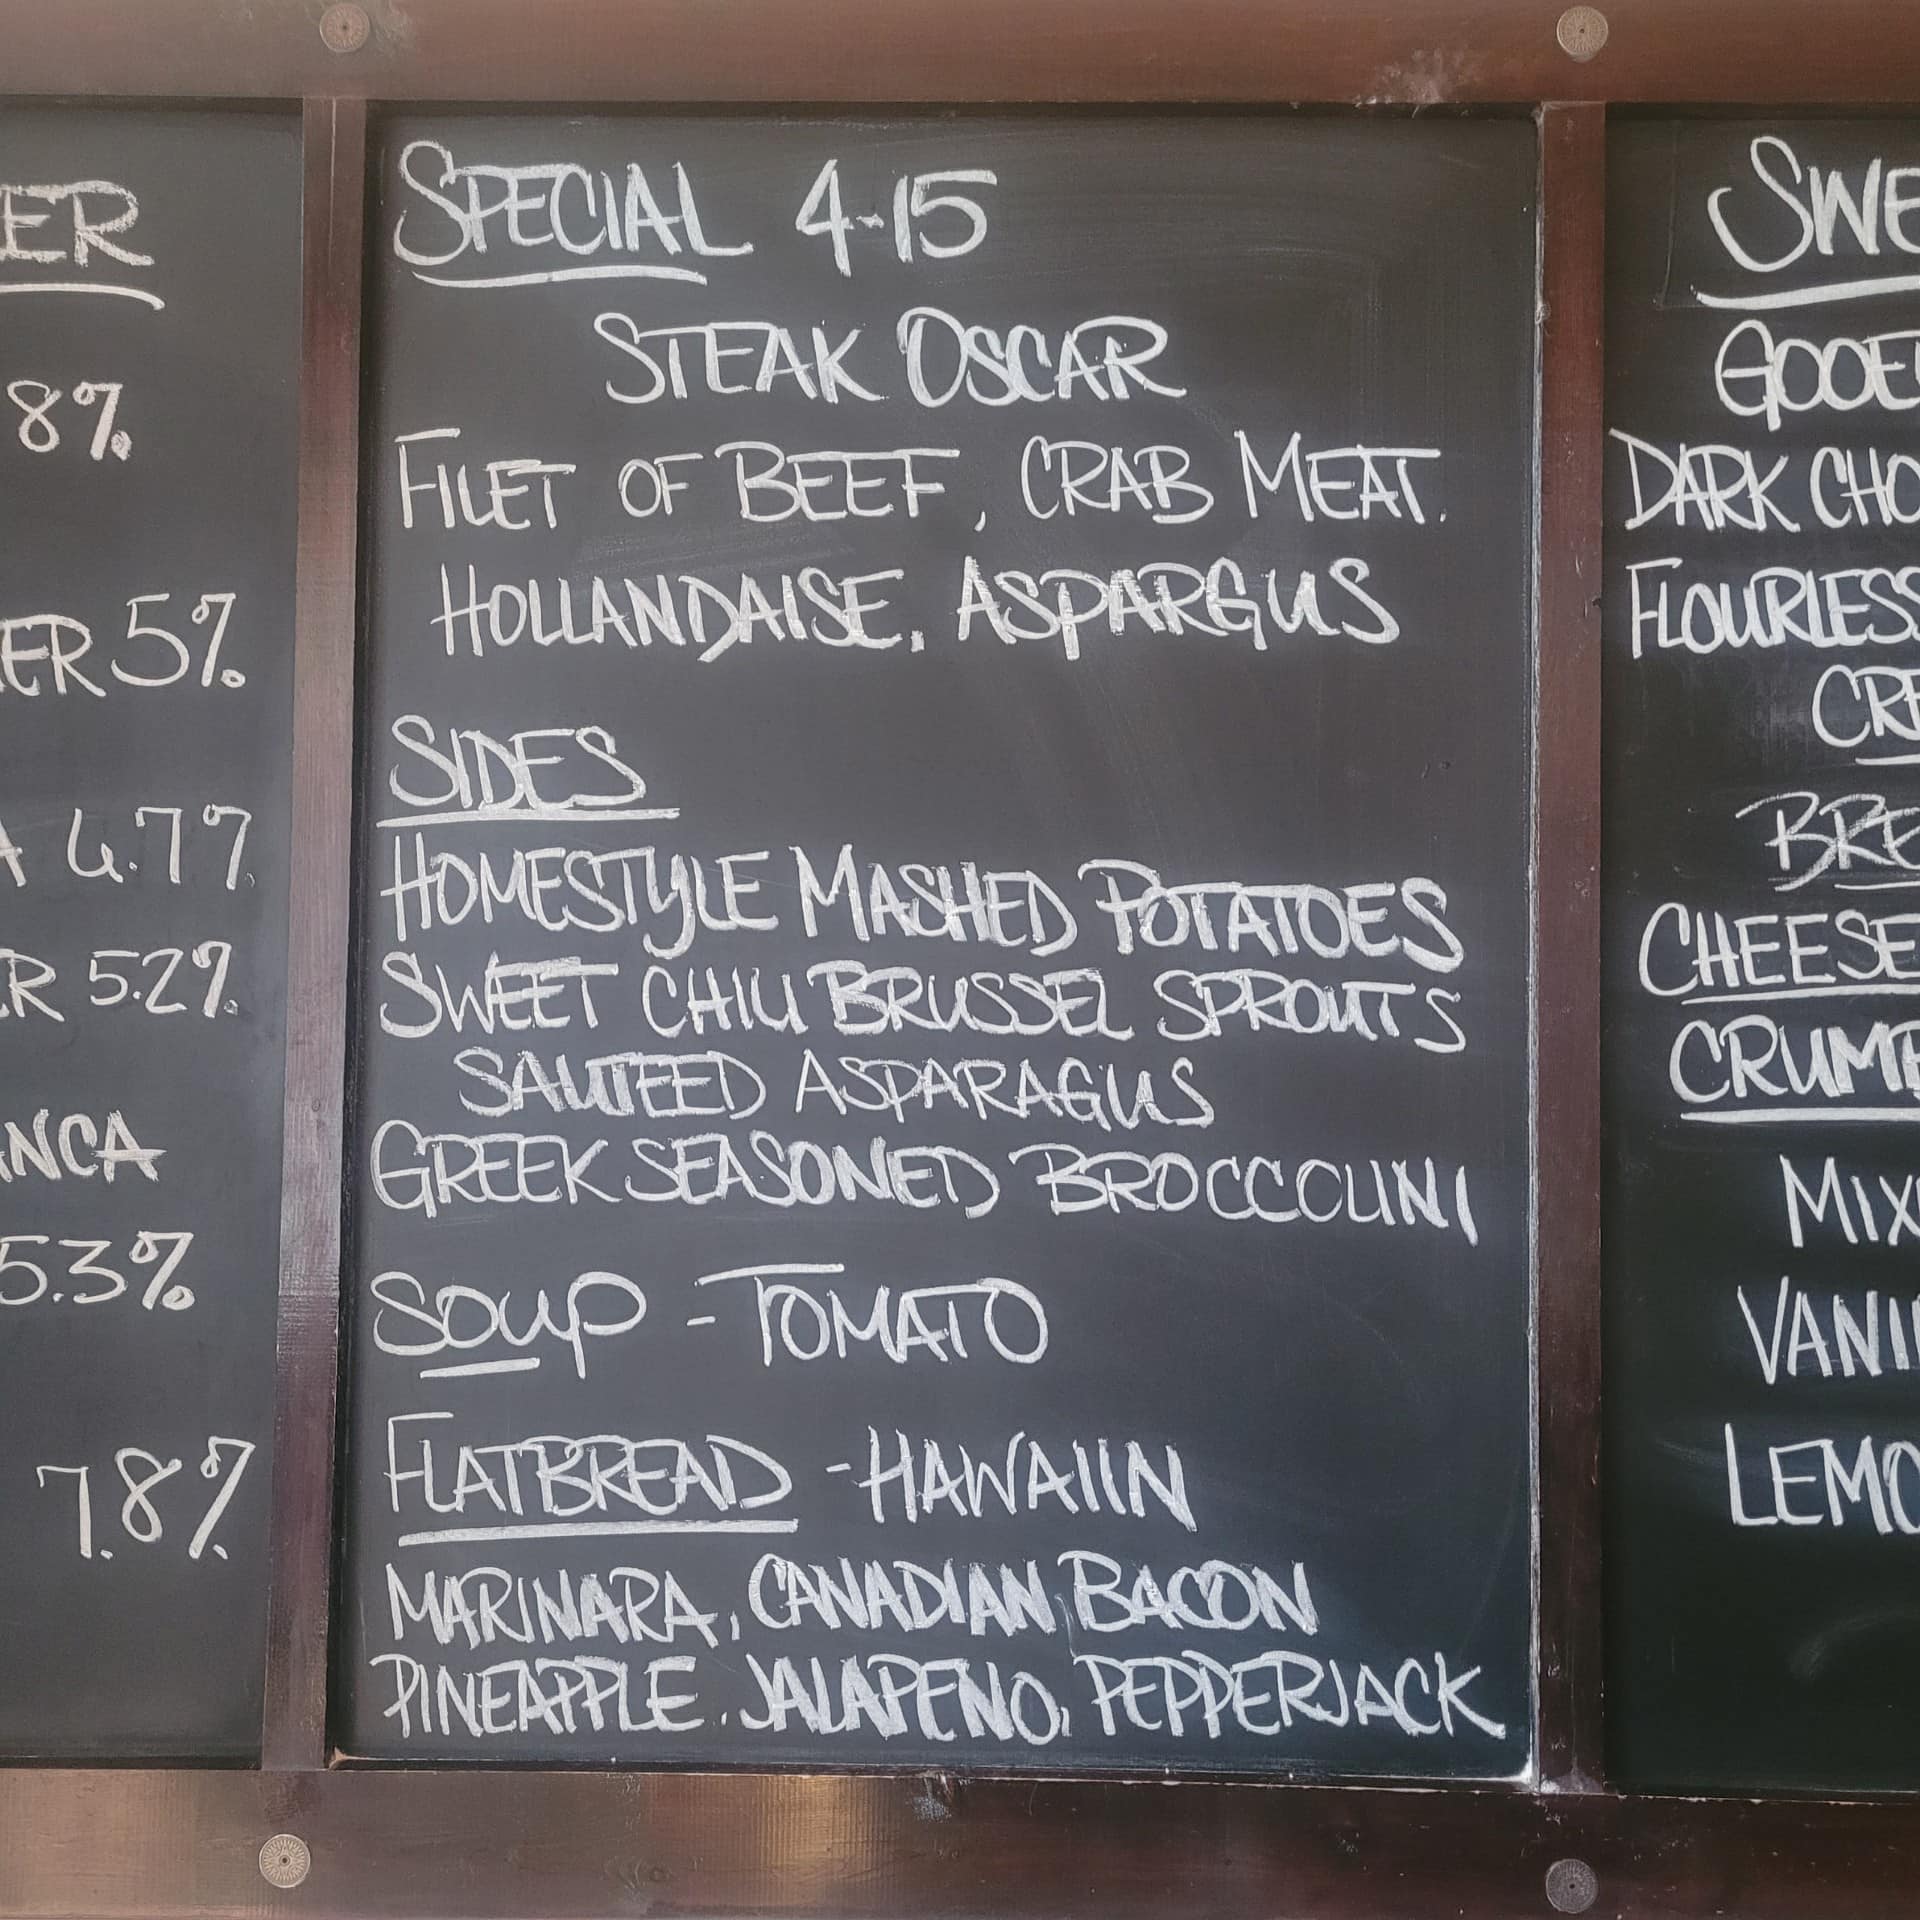 ER
8%
ER 5%
A 4.7%
ER 5.2%
ANCA
5.3%
7.8%
SPECIAL 4-15
STEAK OSCAR
FILET OF BEEF, CRAB MEAT.
HOLLANDAISE. ASPARGUS
SIDES
HOMESTYLE MASHED POTATOES
SWEET CHILI BRUSSEL SPROUTS
SAUTEED ASPARAGUS
GREEK SEASONED BROCCOLINI
SOUP - TOMATO
FLATBREAD - HAWAIIN
MARINARA, CANADIAN BACON
PINEAPPLE. JALAPENO, PEPPERJACK
SWE
GOOEY
DARK CHO
FLOURLESS
CRE
BRE
CHEESE
CRUMB
MIX
VANI
LEMO